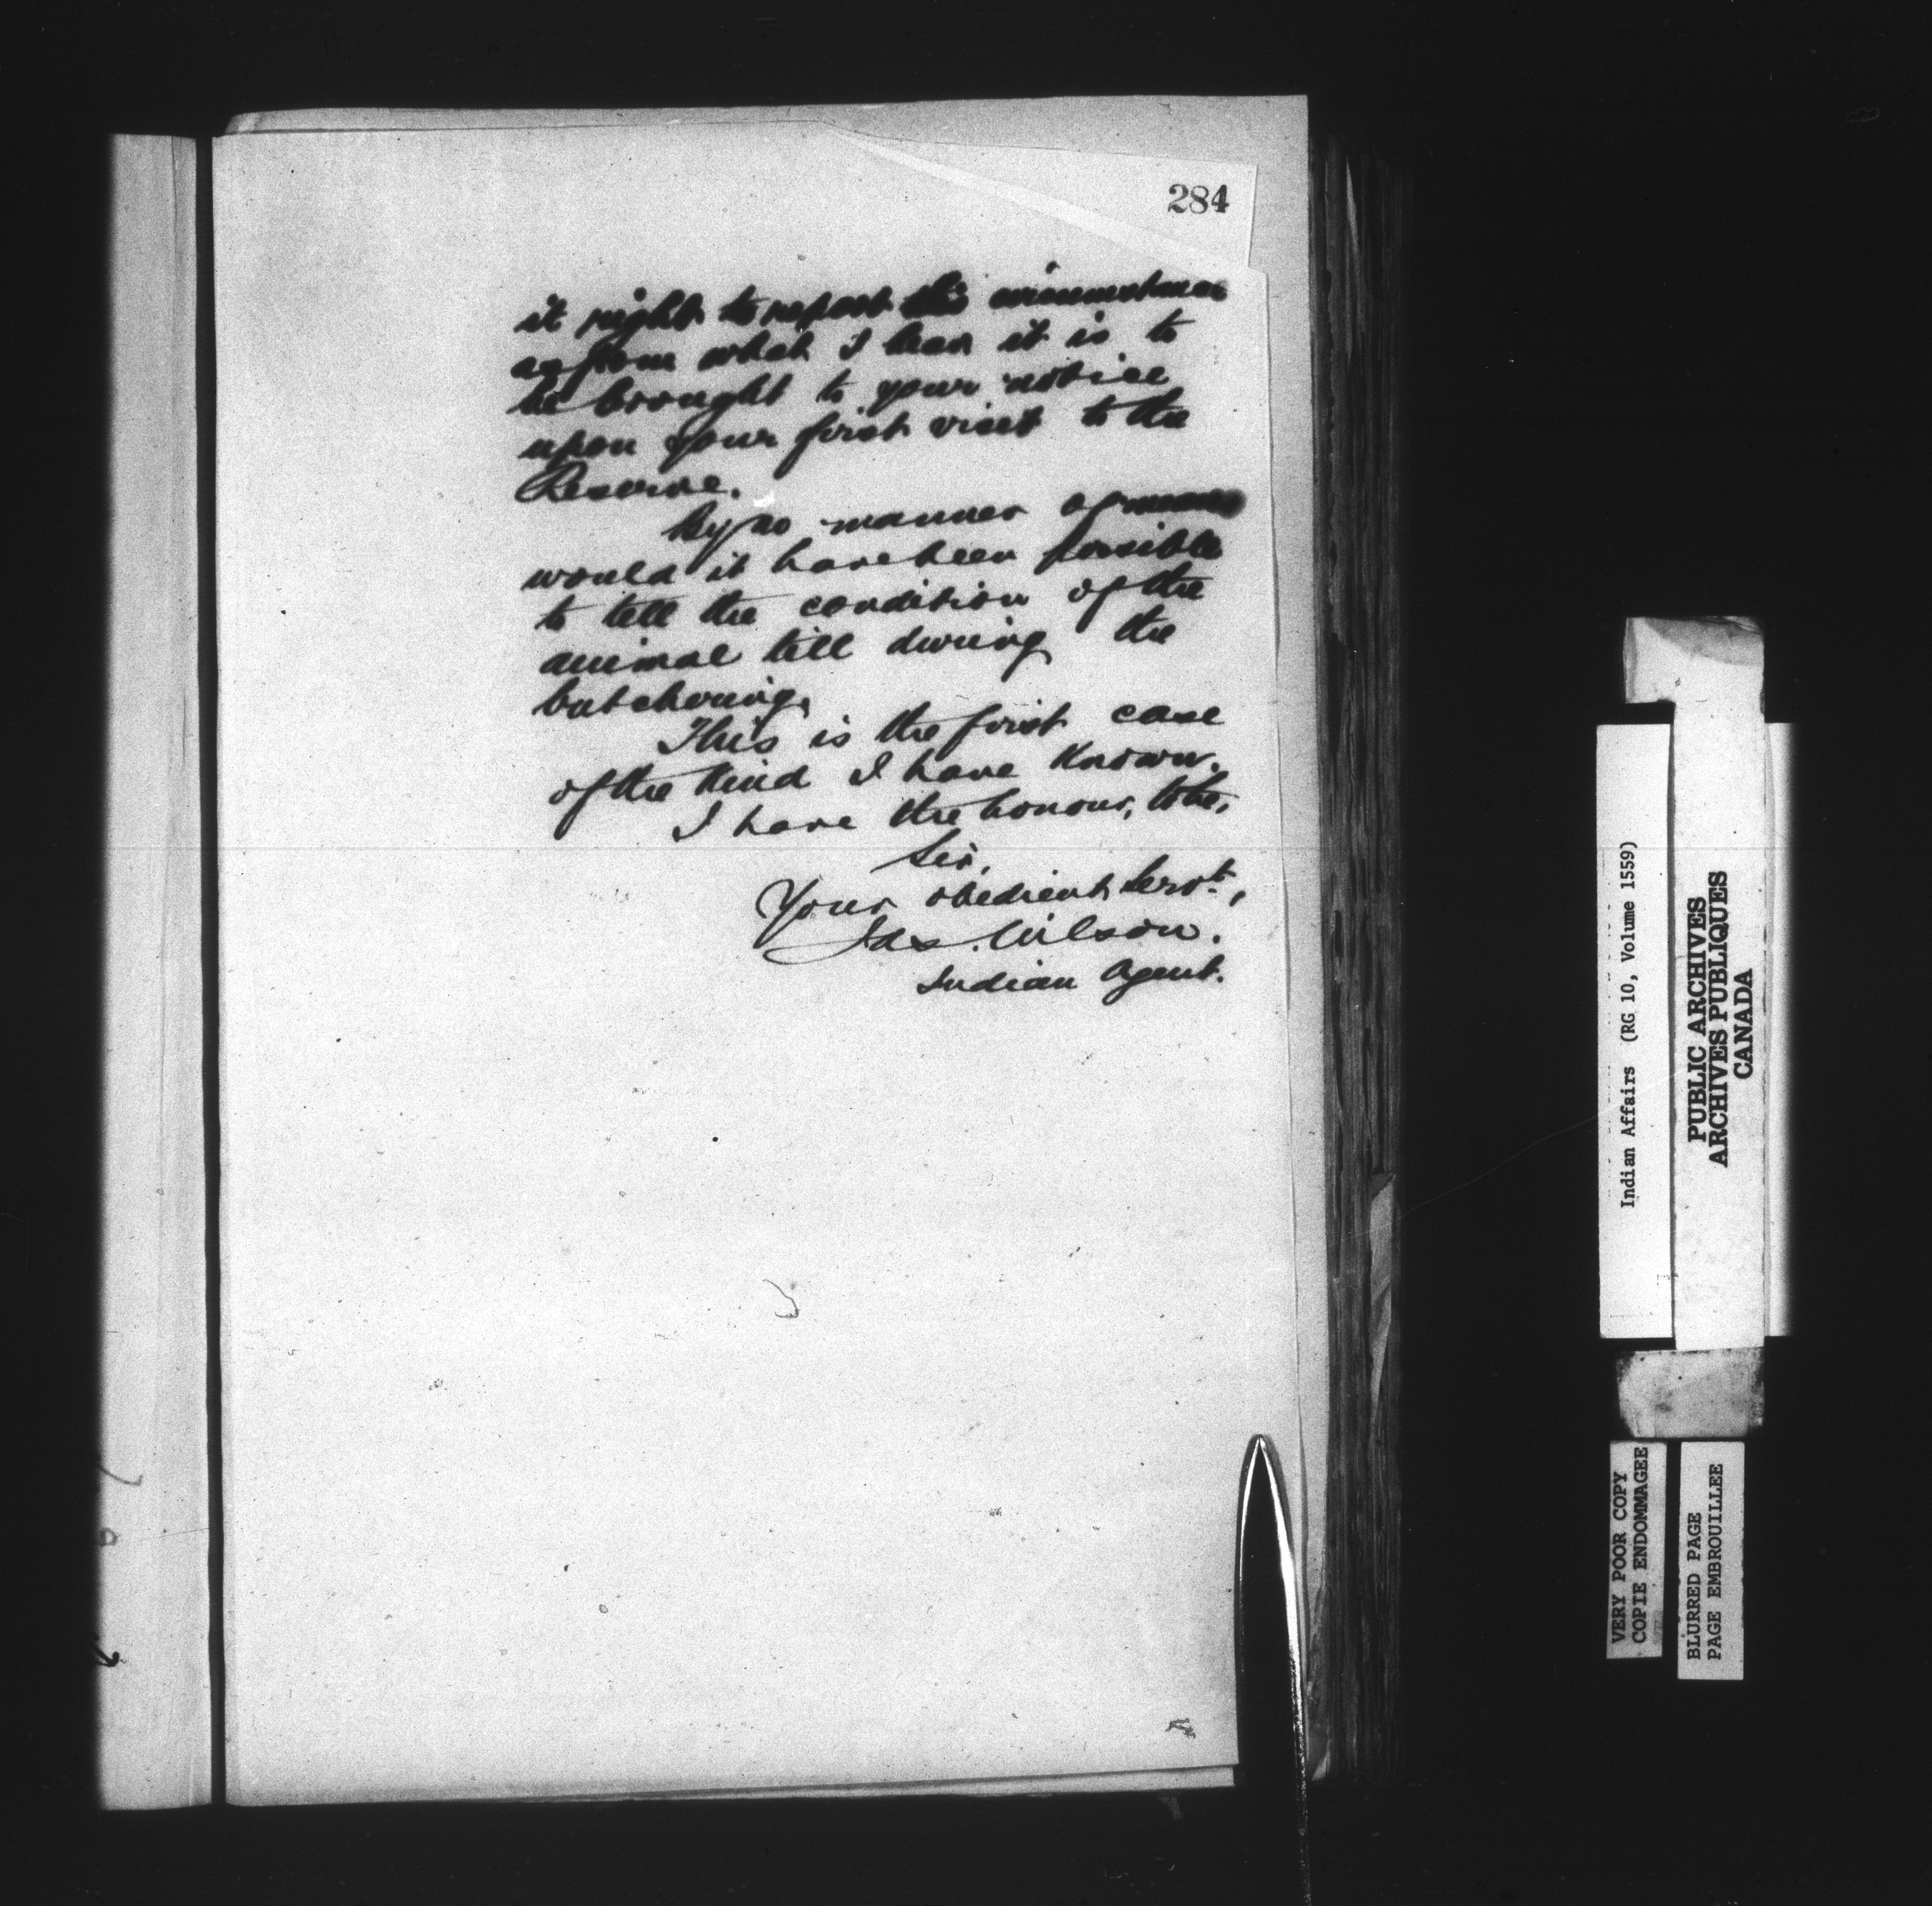 284
it right to report this circumstance
as from what I hear it is to
be brought to your notice
upon your first visit to the
Reserve.
By no manner of means
would it have been possible
to tell the condition of the
animal till during the
butchering.
This is the first case
of the kind I have known.
I have the honour, to be,
Sir,
Your obedient Servt,
Jas. Wilson.
Indian Agent.
Indian Affairs (RG 10, Volume 1559)
PUBLIC ARCHIVES
ARCHIVES PUBLIQUES
CANADA
VERY POOR COPY
COPIE ENDOMMAGEE
BLURRED PAGE
PAGE EMBROUILLEE